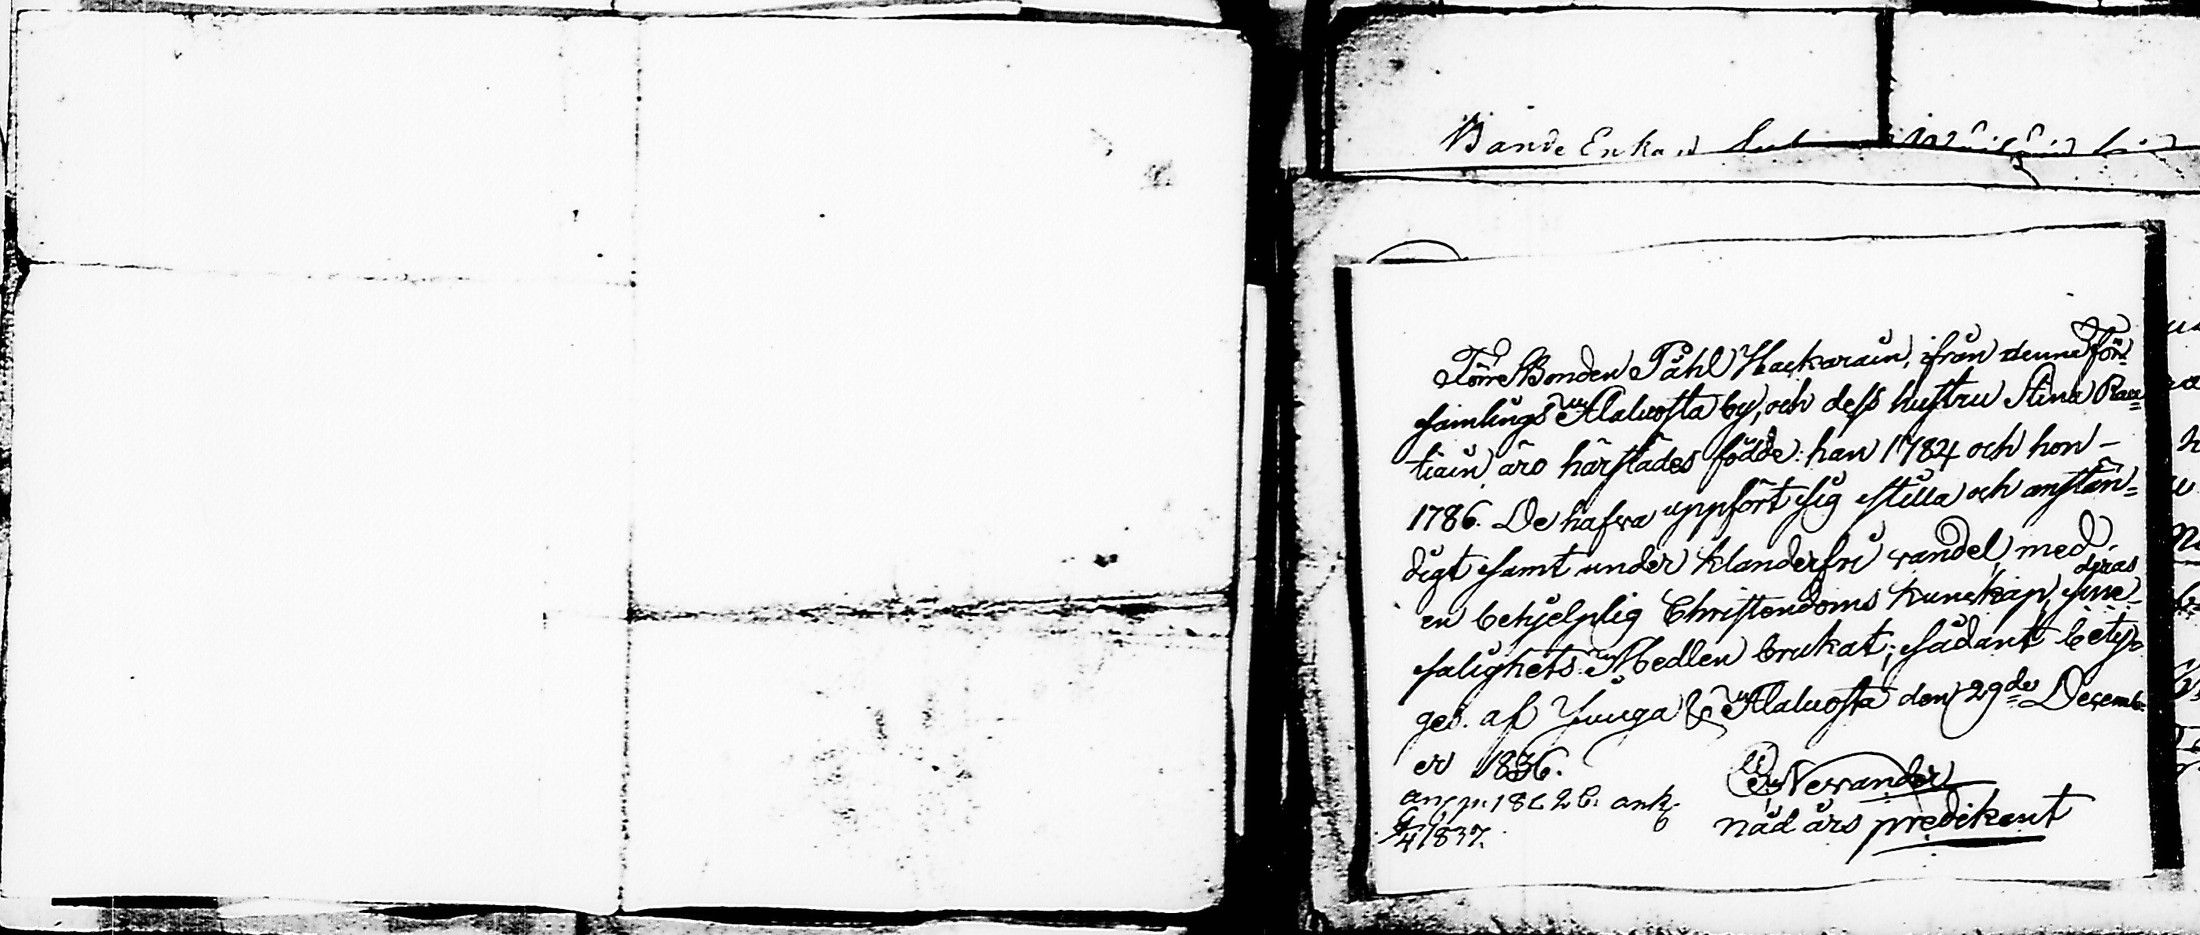 Bonde Enkan
Förre Bonden Påhl Hackarain, ifrån denne För-
samlings Alaluosta by, och dess hustru Stina Rau-
tiain, äro härstädes födde: han 1784 och hon -
1786. De hafva uppfört sig stilla och anstän-
digt samt under klanderfri vandel, med
deras
en behjelplig Christendoms kunskap, sine
salighets Medlen brukat; sådant bety-
ges. af Juuga & Alaluosta den 29de Decemb-
er 1836.
Nevander
nåd års predikant
ank.
4 1837.